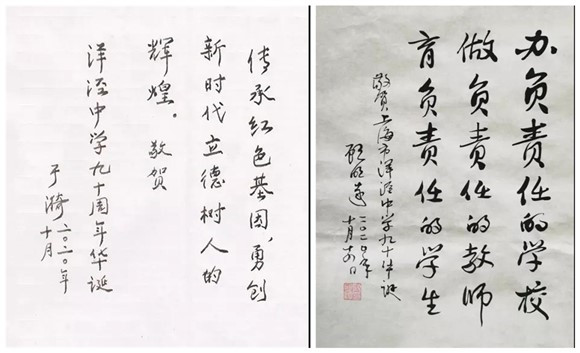 传承红色基因，勇创
新时代立德树人的
辉煌。
敬贺
洋泾中学九十周年华诞
于漪
二〇二〇年
十月
办负责任的学校
做负责任的教师
育负责任的学生
敬贺上海市洋泾中学九十华诞
顾明远
二〇二〇年
十月十四日